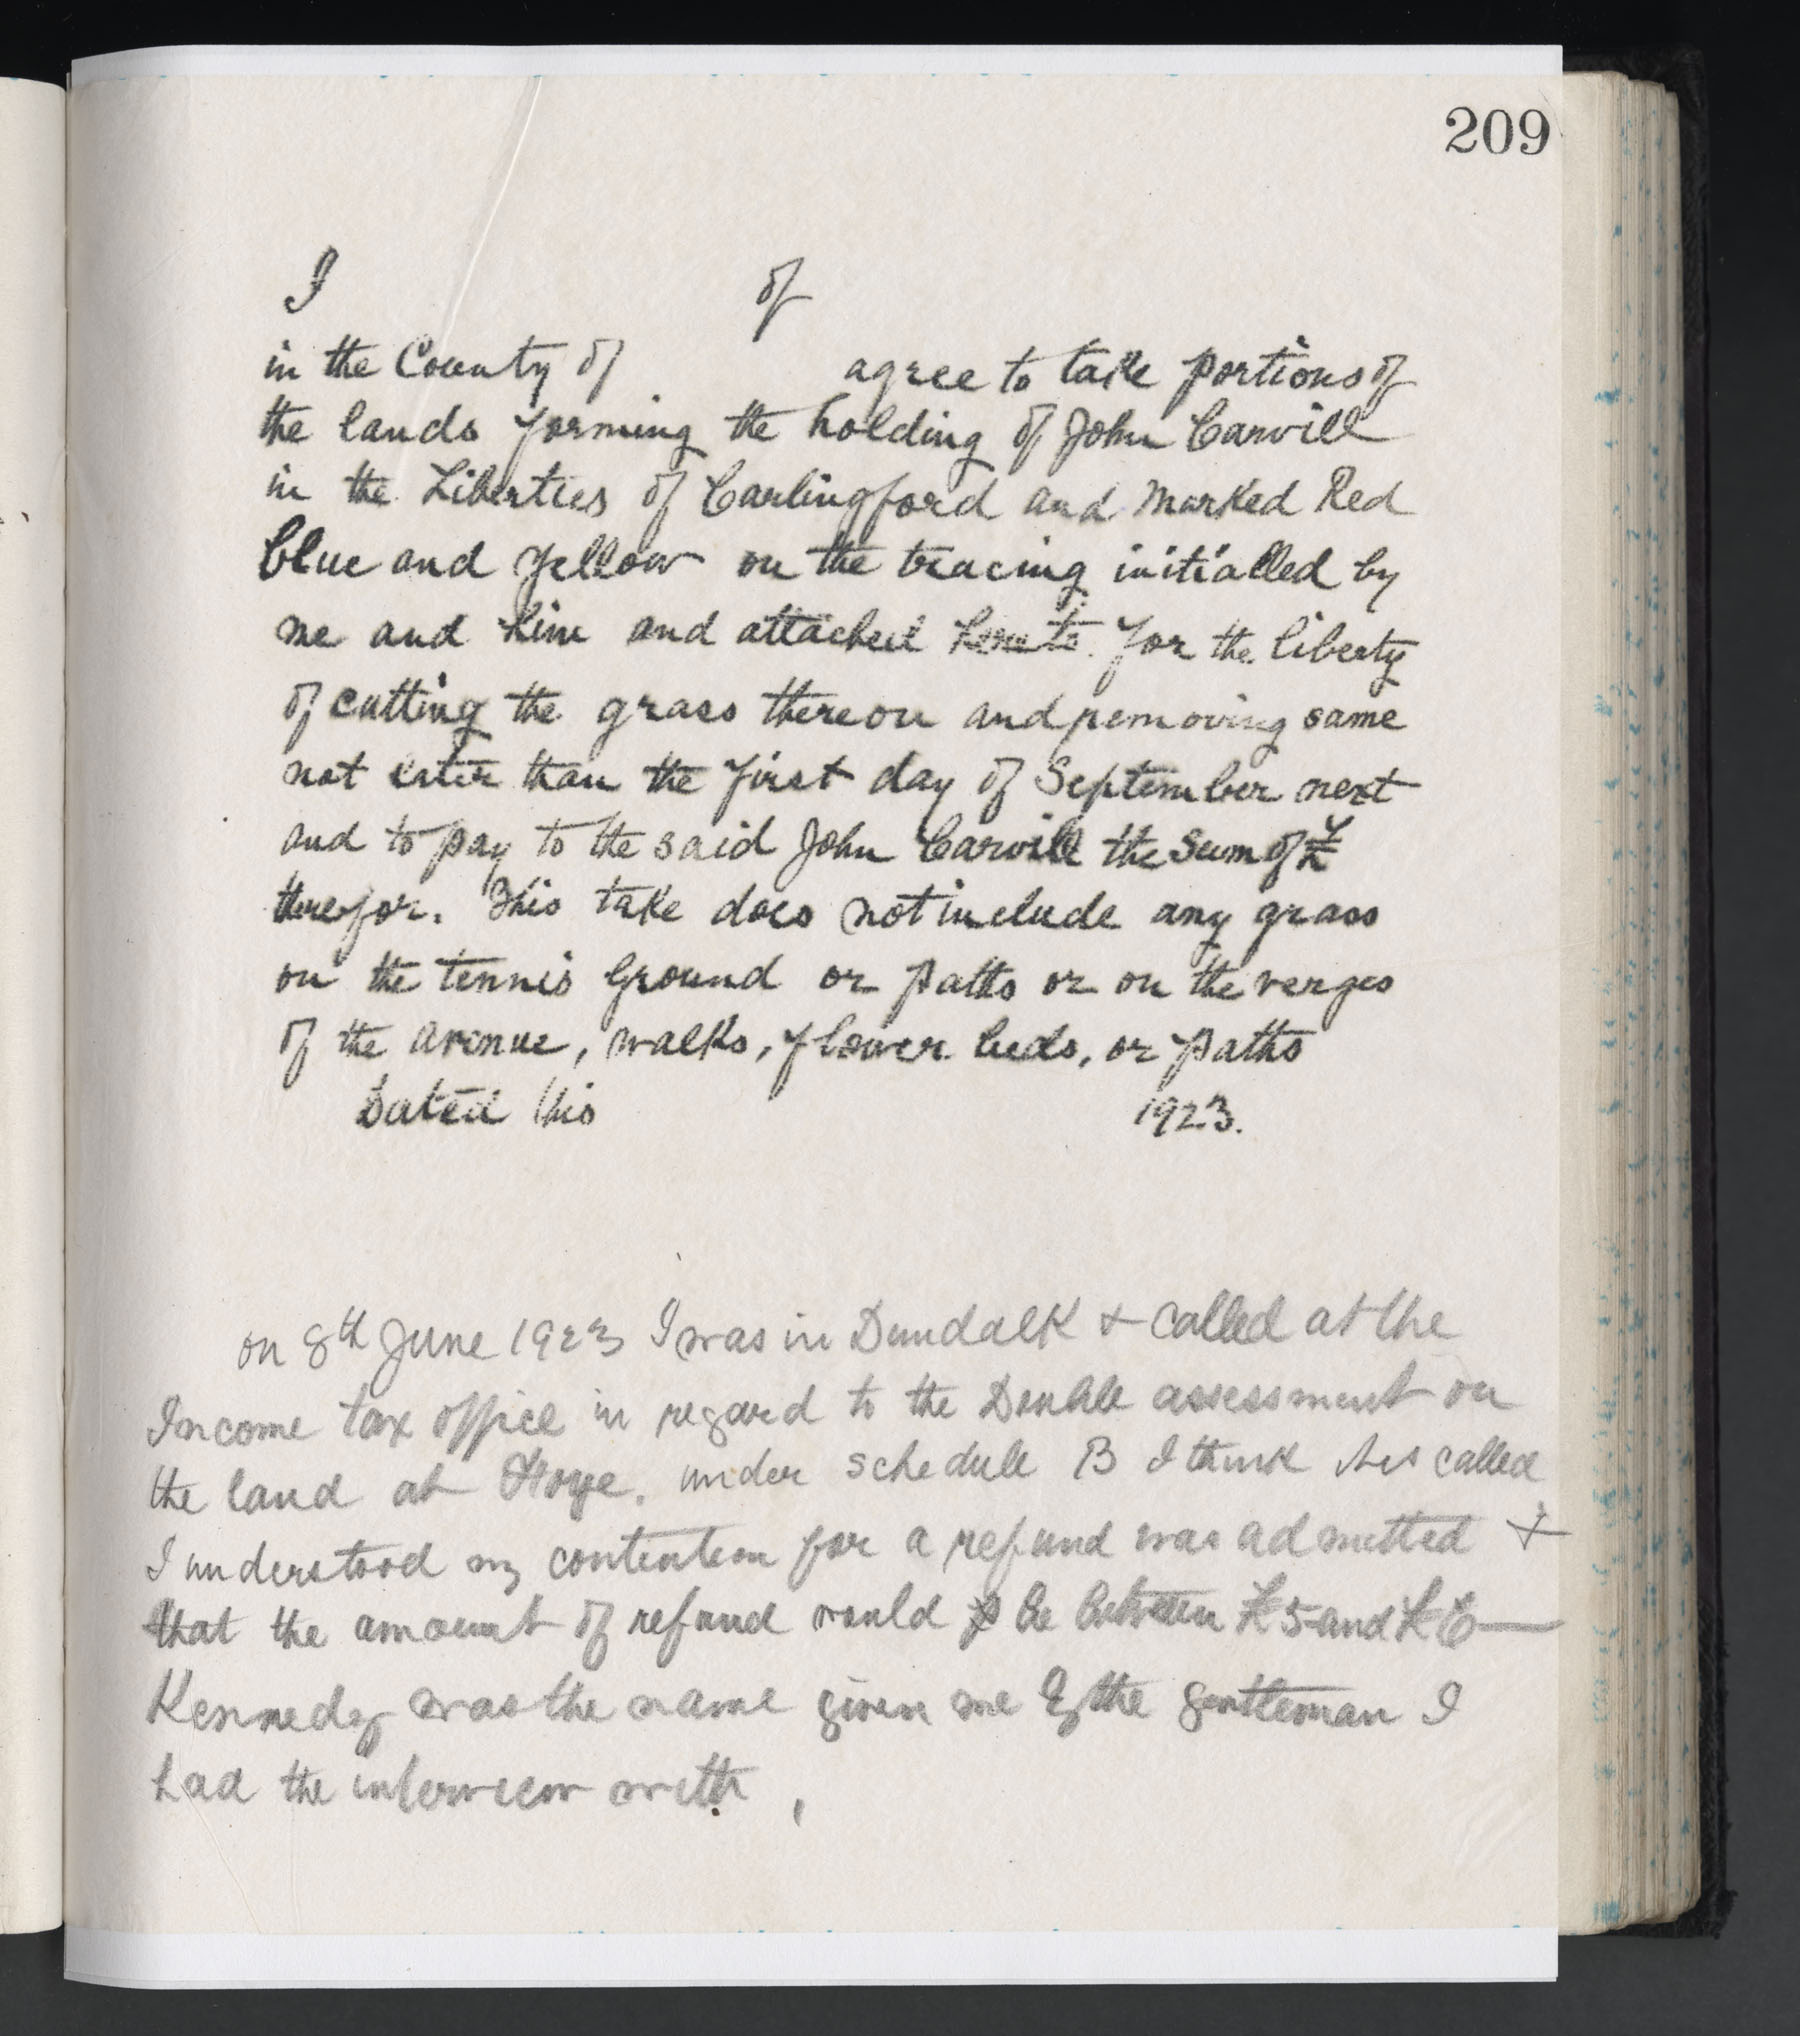 209
I of
in the County of agree to take portions of
the lands forming the holding of John Carvill
in the Liberties of Carlingford and marked Red
blue and yellow on the tracing initialled by
me and him and attached hereto. for the liberty
of cutting the grass thereon and removing same
not later than the first day of September next
and to pay to the said John Carvill the sum of £
therefor. This take does not include any grass
on the tennis ground or paths or on the verges
of the avenue, walks, flower beds, or paths
Dated this 1923.
on 8th June 1923 I was in Dundalk + called at the
Income tax office in regard to the Double assessment on
the land at under schedule B I think its called
I understood my contention for a refund was admitted +
that the amount of refund would be between £5 and £6
Kennedy was the name given me by the gentleman I
had the interview with,